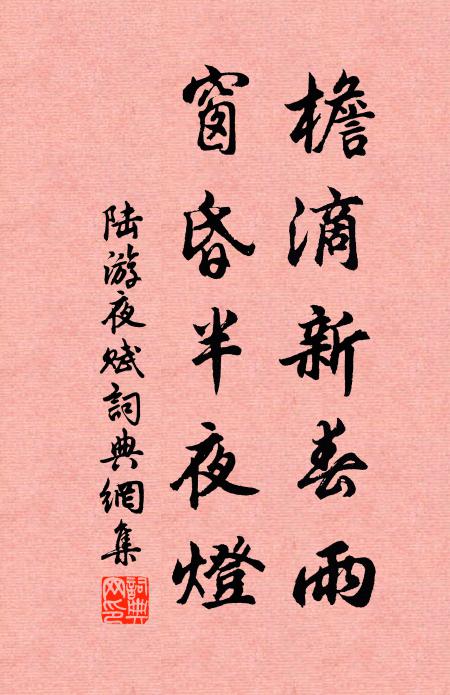 檐滴新春雨
窗昏半夜燈
陆游夜赋詞典網集
詞典
网印